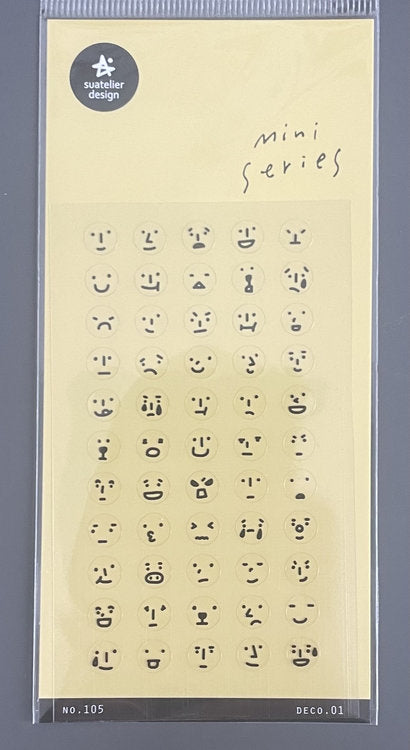 suatelier
design
mini
series
NO.105
DECO.01